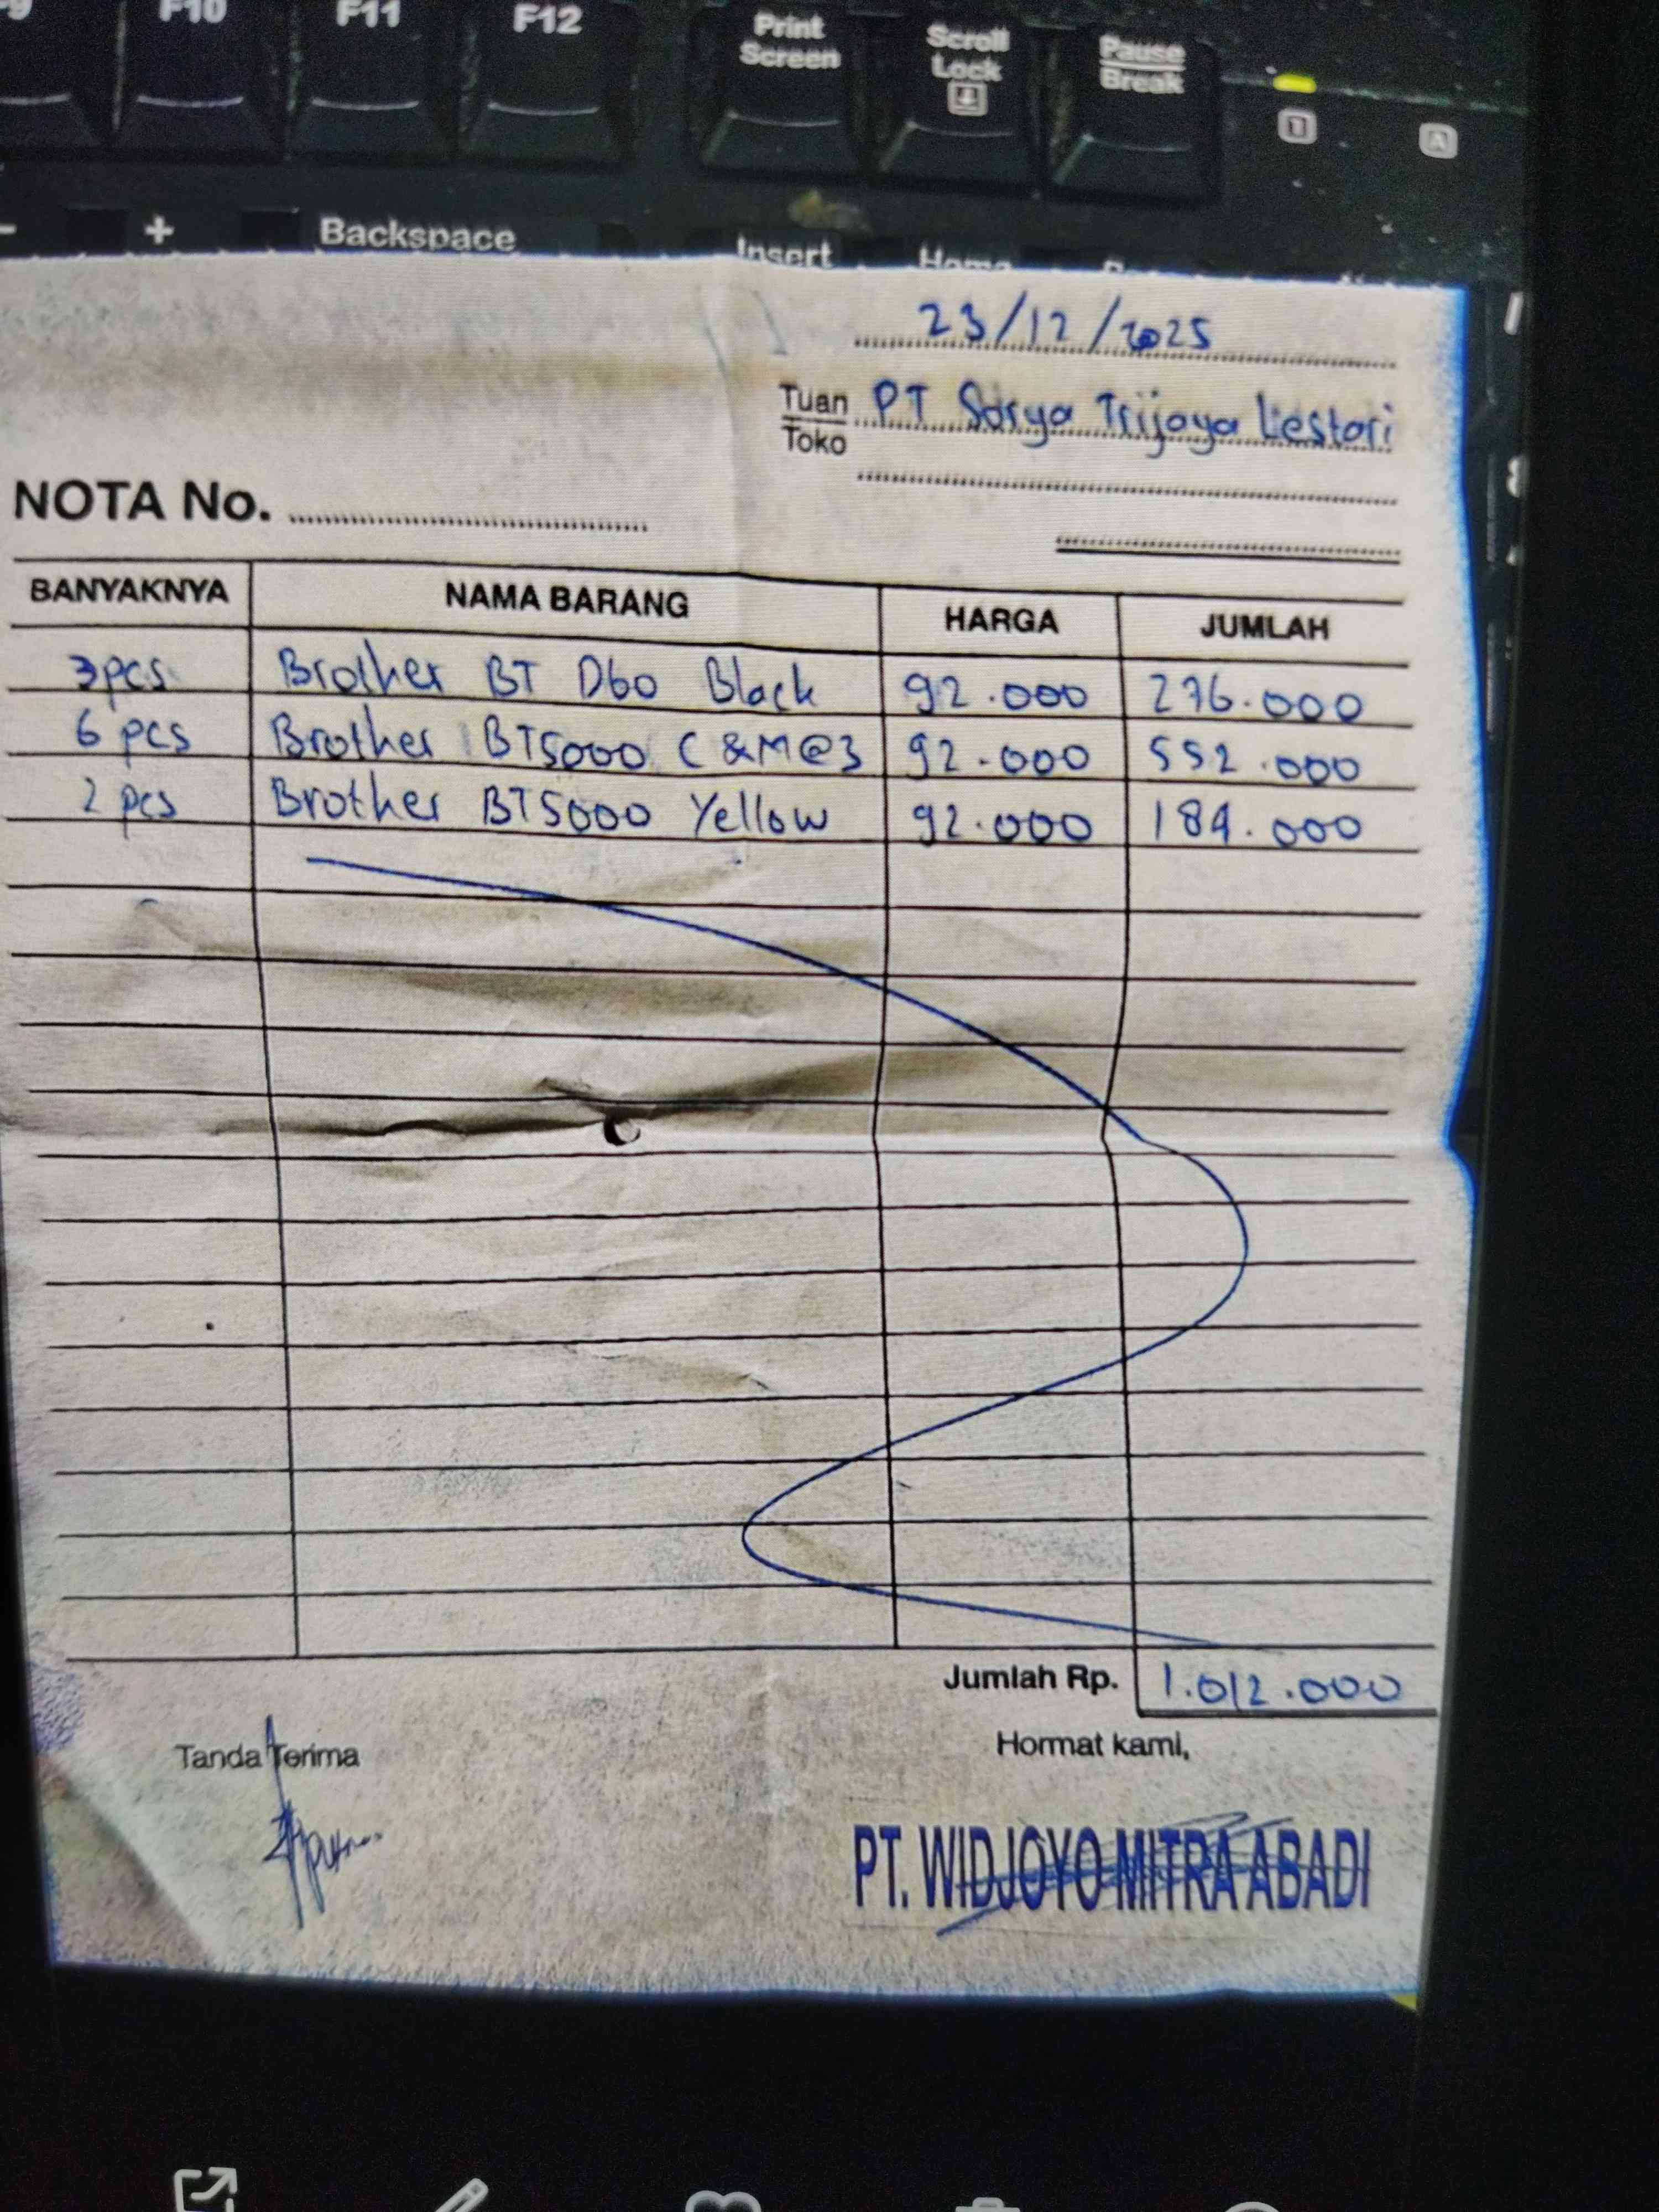 F10 F11 F12 Print Screen Scroll Lock Pause Break
1 A
- + Backspace Insert Home
23/12/2025
Tuan Toko PT Surya Trijaya Lestari
NOTA No.
BANYAKNYA NAMA BARANG HARGA JUMLAH
3 pcs Brother BT D60 Black 92.000 276.000
6 pcs Brother BT5000 C & M @3 92.000 552.000
2 pcs Brother BT5000 Yellow 92.000 184.000
Jumlah Rp. 1.012.000
Tanda Terima Hormat kami,
PT. WIDJOYO MITRA ABADI